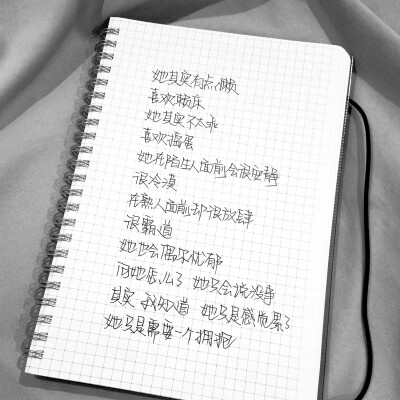 她其实有点懒
喜欢赖床
她其实不太乖
喜欢捣蛋
她在陌生人面前会很安静
很冷漠
在熟人面前却很放肆
很霸道
她也会偶尔忧郁
问她怎么了 她只会说没事
其实 我知道 她只是感觉累了
她只是需要一个拥抱